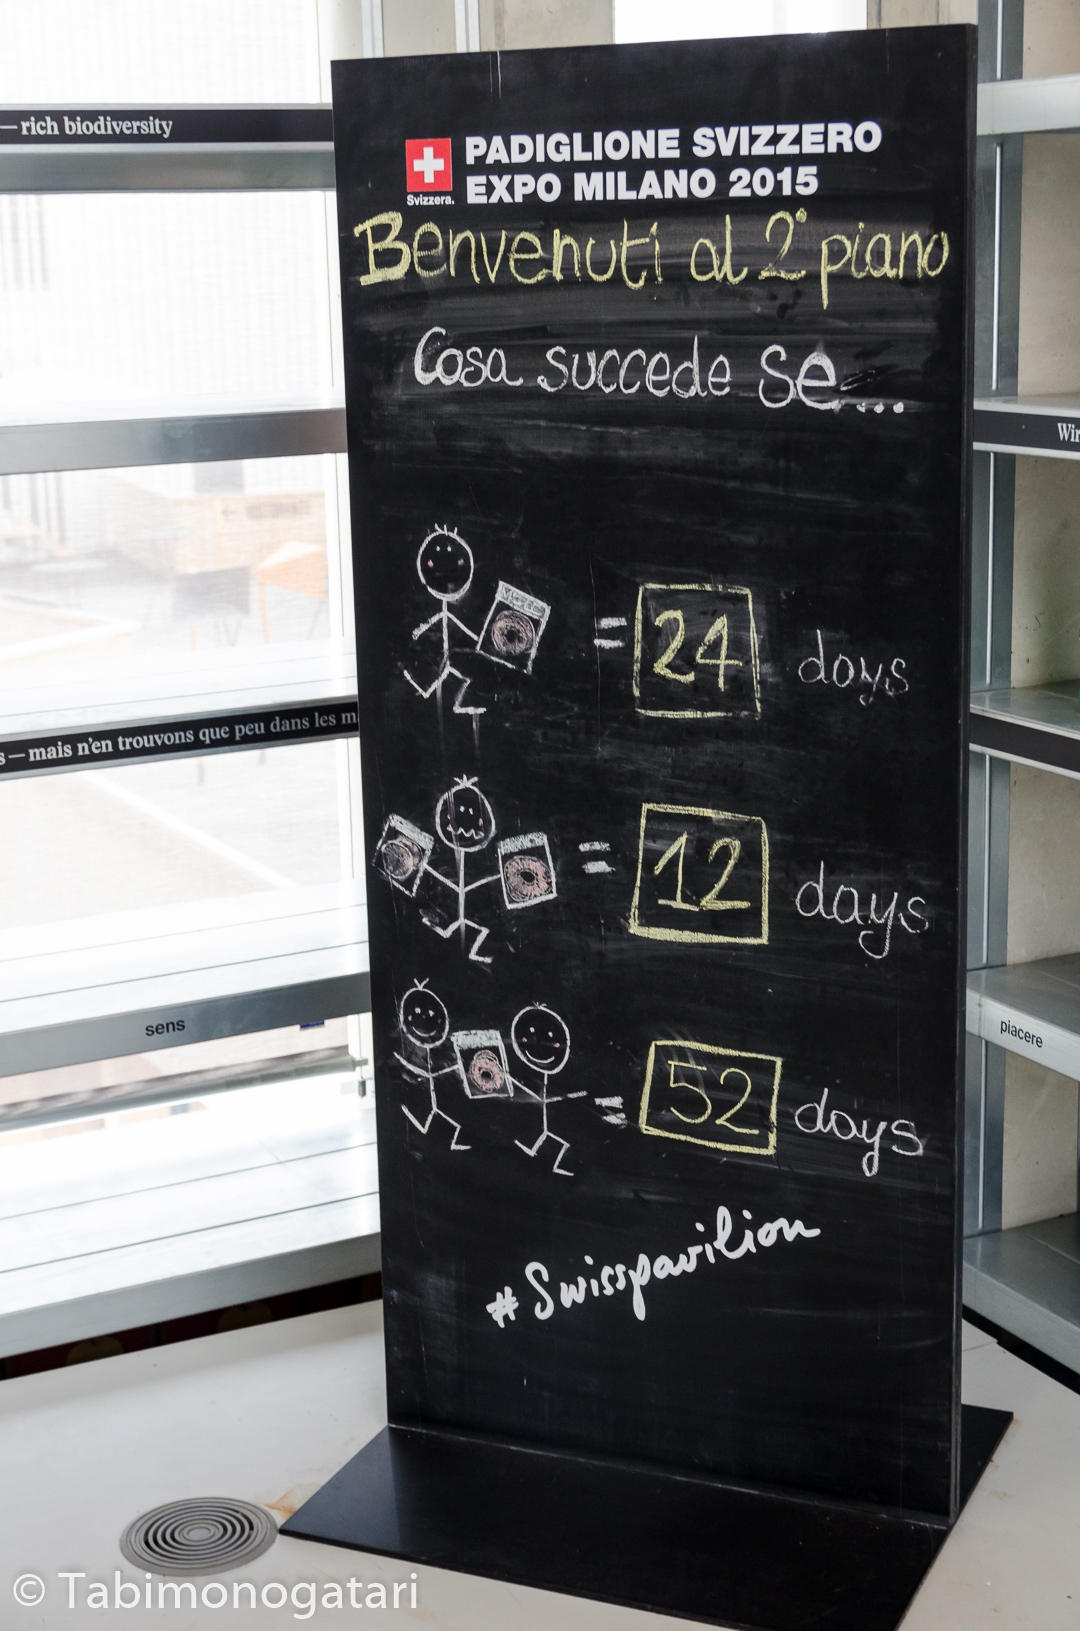 — rich biodiversity
PADIGLIONE SVIZZERO
EXPO MILANO 2015
Svizzera.
Benvenuti al 2° piano
Cosa succede se...
Win
= 24 days
s — mais n'en trouvons que peu dans les m
= 12 days
sens
piacere
= 52 days
#Swisspavilion
© Tabimonogatari